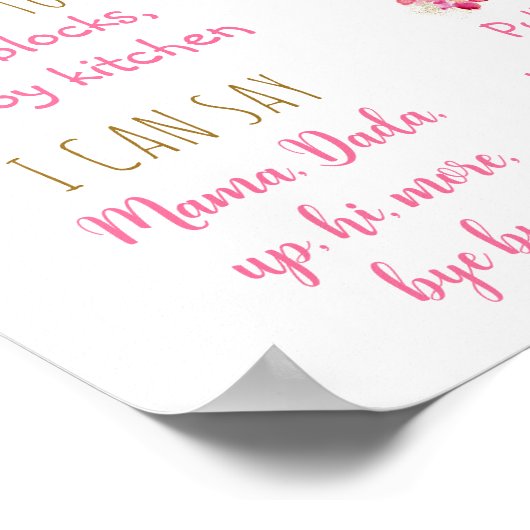 blocks,
kitchen
I CAN SAY
Mama, Dada,
up, hi, more,
bye